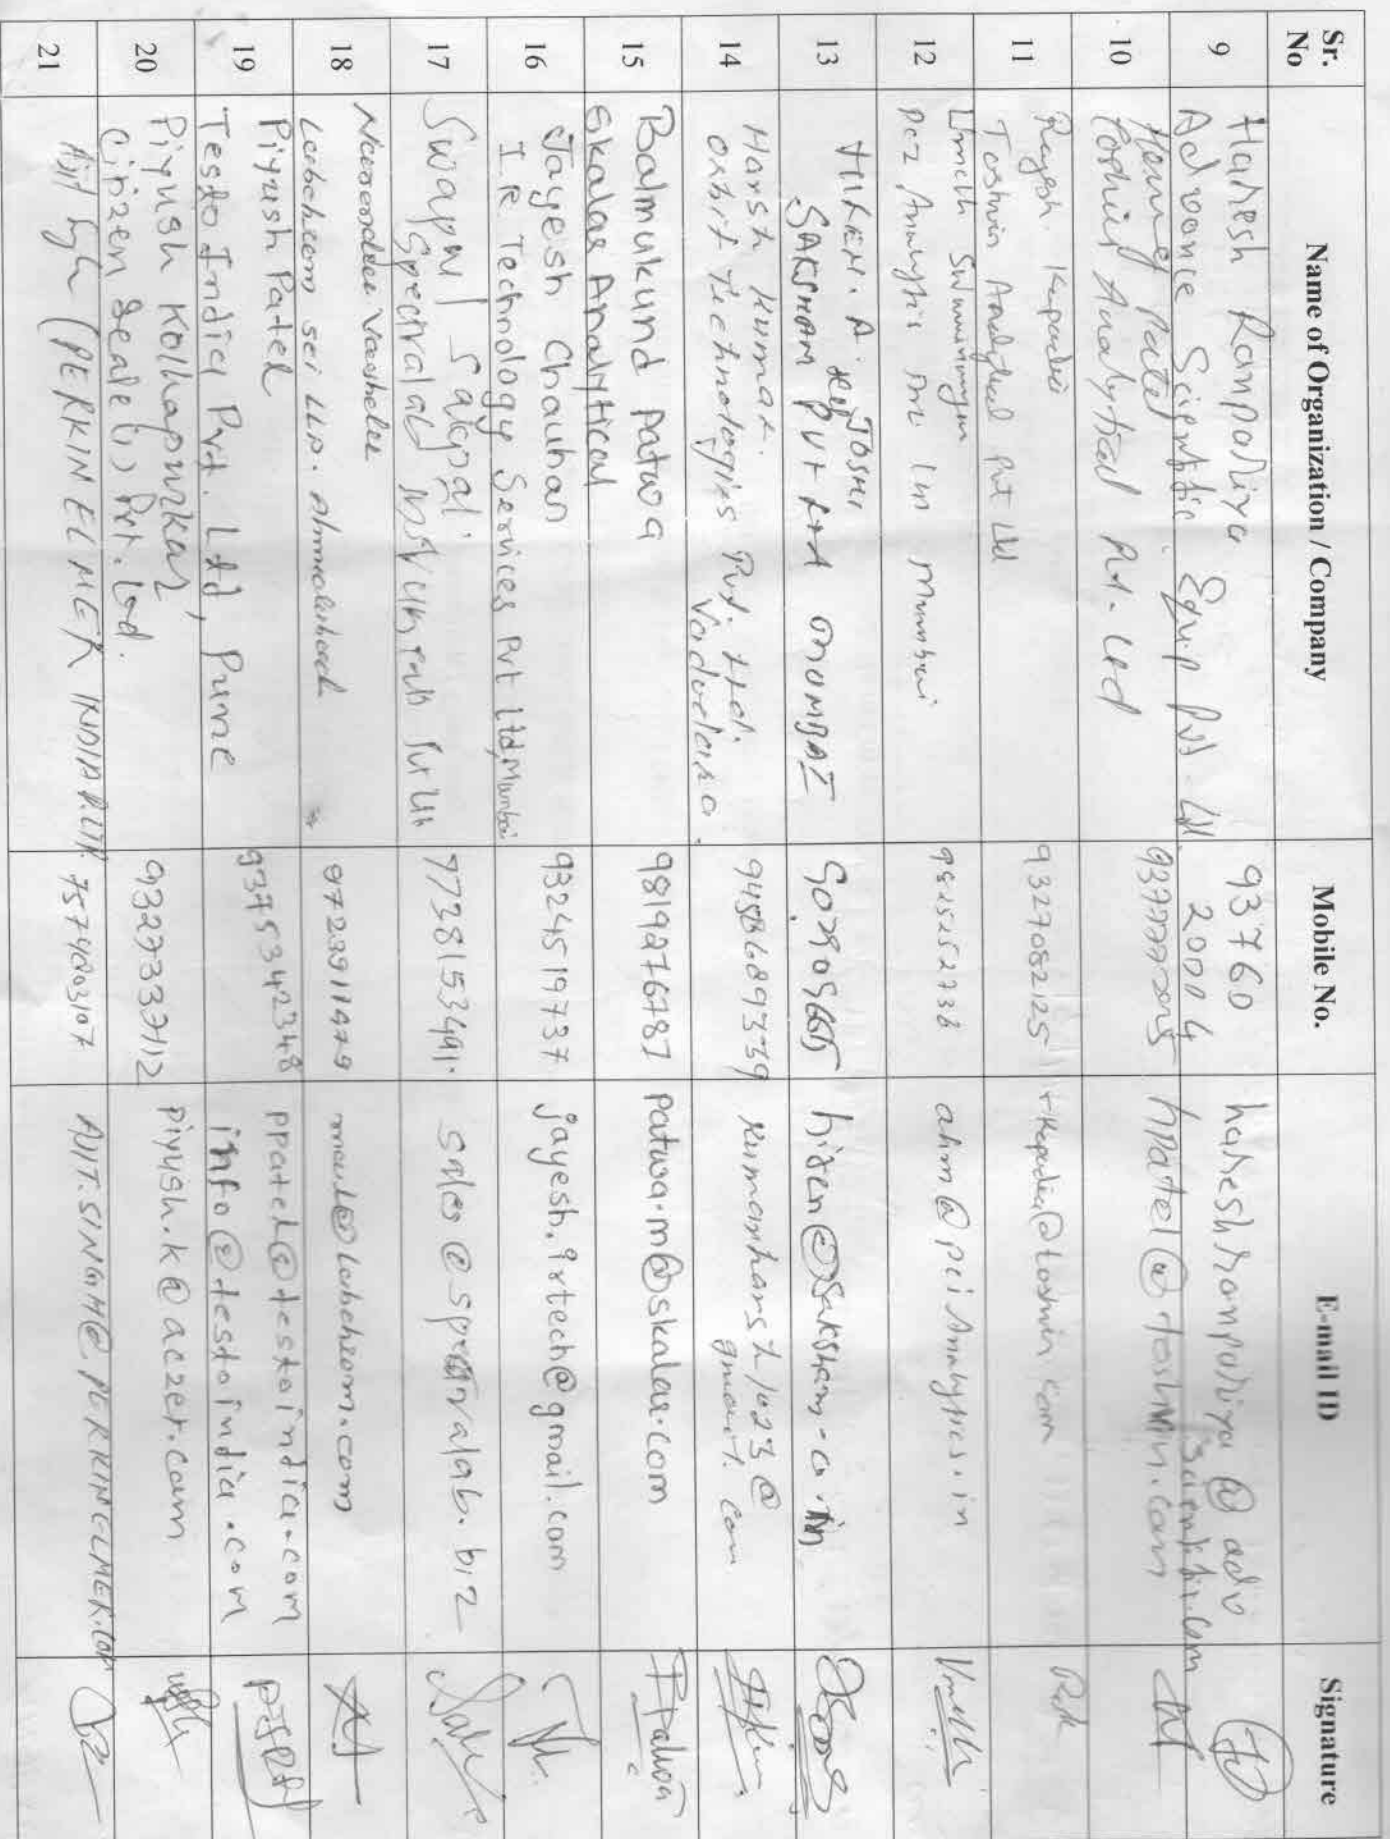 Sr. No
Name of Organization / Company
Mobile No.
E-mail ID
Signature
9
Haresh Rampariya
Advance Scientific Equip Pvt. Ltd
93760
20004
hareshrampariya@adv
scientific.com
10
Hemang Patel
Toshvin Analytical Pvt. Ltd
hpatel@toshvin.com
11
Rajesh Kapadia
Toshvin Analytical Pvt Ltd
9327082125
rkapadia@toshvin.com
12
Umesh
PCI Analytics Pvt Ltd Mumbai
ahm@pciAnalytics.in
13
HIREN. A. JOSHI
SAKSHAM PVT LTD MUMBAI
hiren@saksham.co.in
14
Harsh Kumar.
Orbit Technologies Pvt. Ltd.
Vadodara.
kumarharsh1023@
gmail.com
15
Balmukund Patwa
Skalar Analytical
9819276787
patwa.m@skalar.com
Patwa
16
Jayesh Chauhan
I R Technology Services Pvt Ltd, Mumbai
9324519737
jayesh.irtech@gmail.com
17
Swapnil
Spectralab Instruments Pvt Ltd
7738153491.
sales@spectralab.biz
18
Labchem sci LLP. Ahmedabad
9723911979
19
Piyush Patel
Testo India Pvt. Ltd, Pune
9375342348
ppatel@testoindia.com
info@testoindia.com
20
Piyush Kolhapurkar
Citizen Scale (I) Pvt. Ltd.
9327337112
piyush.k@aczet.com
21
Ajit Singh (PERKIN ELMER INDIA P.LTD.
7574803107
AJIT.SINGH@PERKINELMER.COM